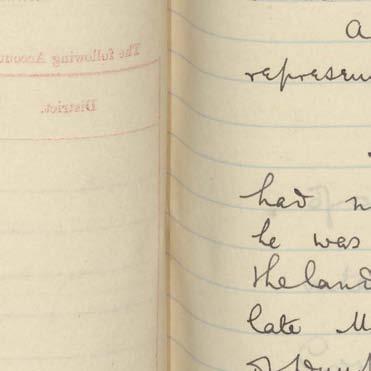 The following Accou
District.
a
represen
had n
he was
the land
late M